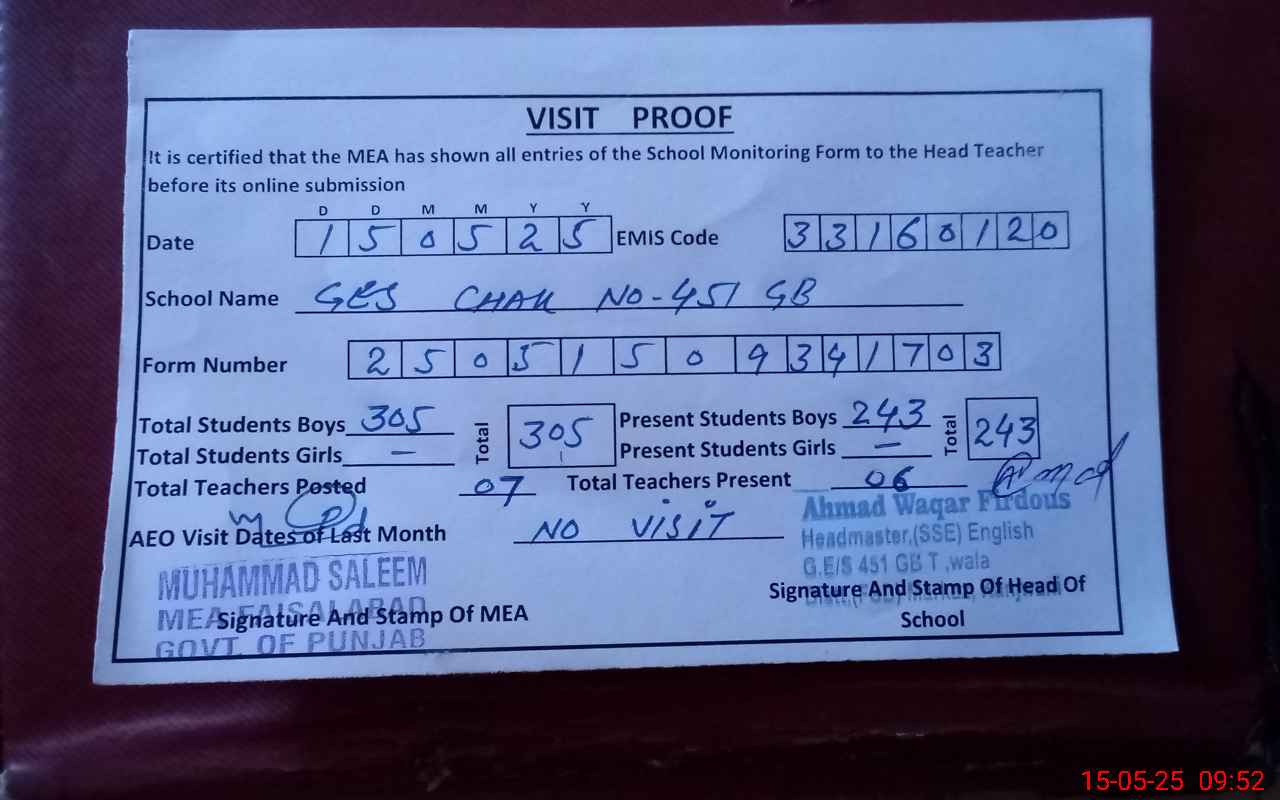 VISIT PROOF
It is certified that the MEA has shown all entries of the School Monitoring Form to the Head Teacher
before its online submission
D D M M Y Y
Date 1 5 0 5 2 5 EMIS Code 3 3 1 6 0 1 2 0
School Name GES CHAK NO-451 GB
Form Number 2 5 0 5 1 5 0 9 3 4 1 7 0 3
Total Students Boys 305 Total 305 Present Students Boys 243 Total 243
Total Students Girls — Present Students Girls —
Total Teachers Posted 07 Total Teachers Present 06
AEO Visit Dates of Last Month NO VISIT
Ahmad Waqar Firdous
Headmaster,(SSE) English
G.E/S 451 GB T.wala
MUHAMMAD SALEEM
MEA FAISALABAD
GOVT. OF PUNJAB
Signature And Stamp Of MEA
Signature And Stamp Of Head Of
School
15-05-25 09:52